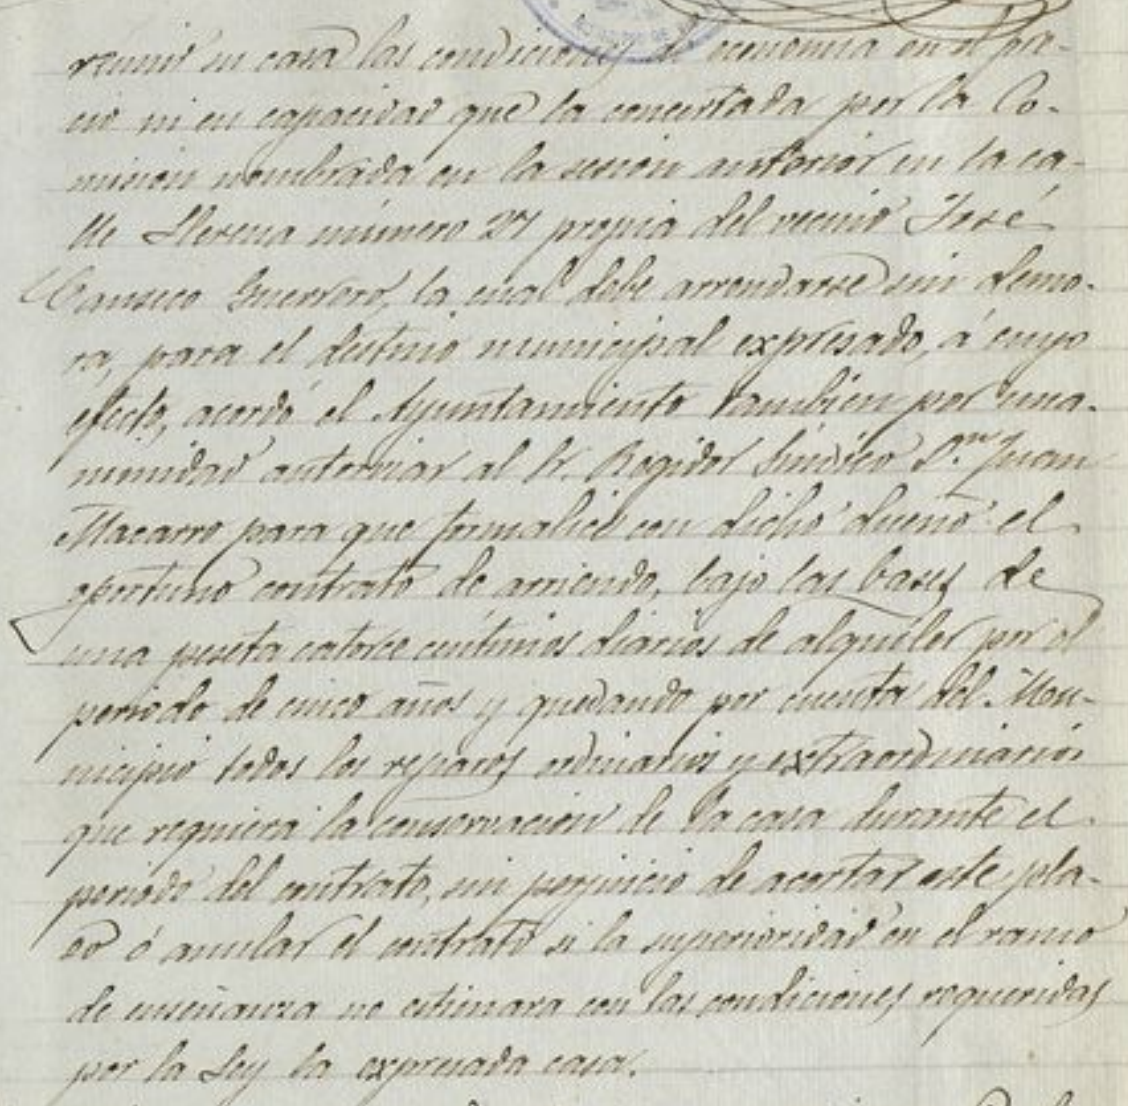 reunir su casa las condiciones de economia en el pre-
cio ni en capacidad que la concertada por la Co-
mision nombrada en la sesion anterior en la ca-
lle Llerena número 27 propia del vecino José
Canseco Guerrero, la cual debe arrendarse sin demo-
ra, para el destino municipal expresado, á cuyo
efecto, acordó el Ayuntamiento tambien por una-
nimidad autorizar al Sr. Regidor Síndico Dn. Juan
Macarro para que formalice con dicho dueño el
oportuno contrato de arriendo, bajo las bases de
una peseta catorce céntimos diarios de alquiler por el
periodo de cinco años y quedando por cuenta del Mu-
nicipio todos los reparos ordinarios y extraordinarios
que requiera la conservacion de la casa durante el
periodo del contrato, sin perjuicio de acortar este pla-
zo ó anular el contrato si la superioridad en el ramo
de enseñanza no estimara con las condiciones requeridas
por la Ley la expresada casa.